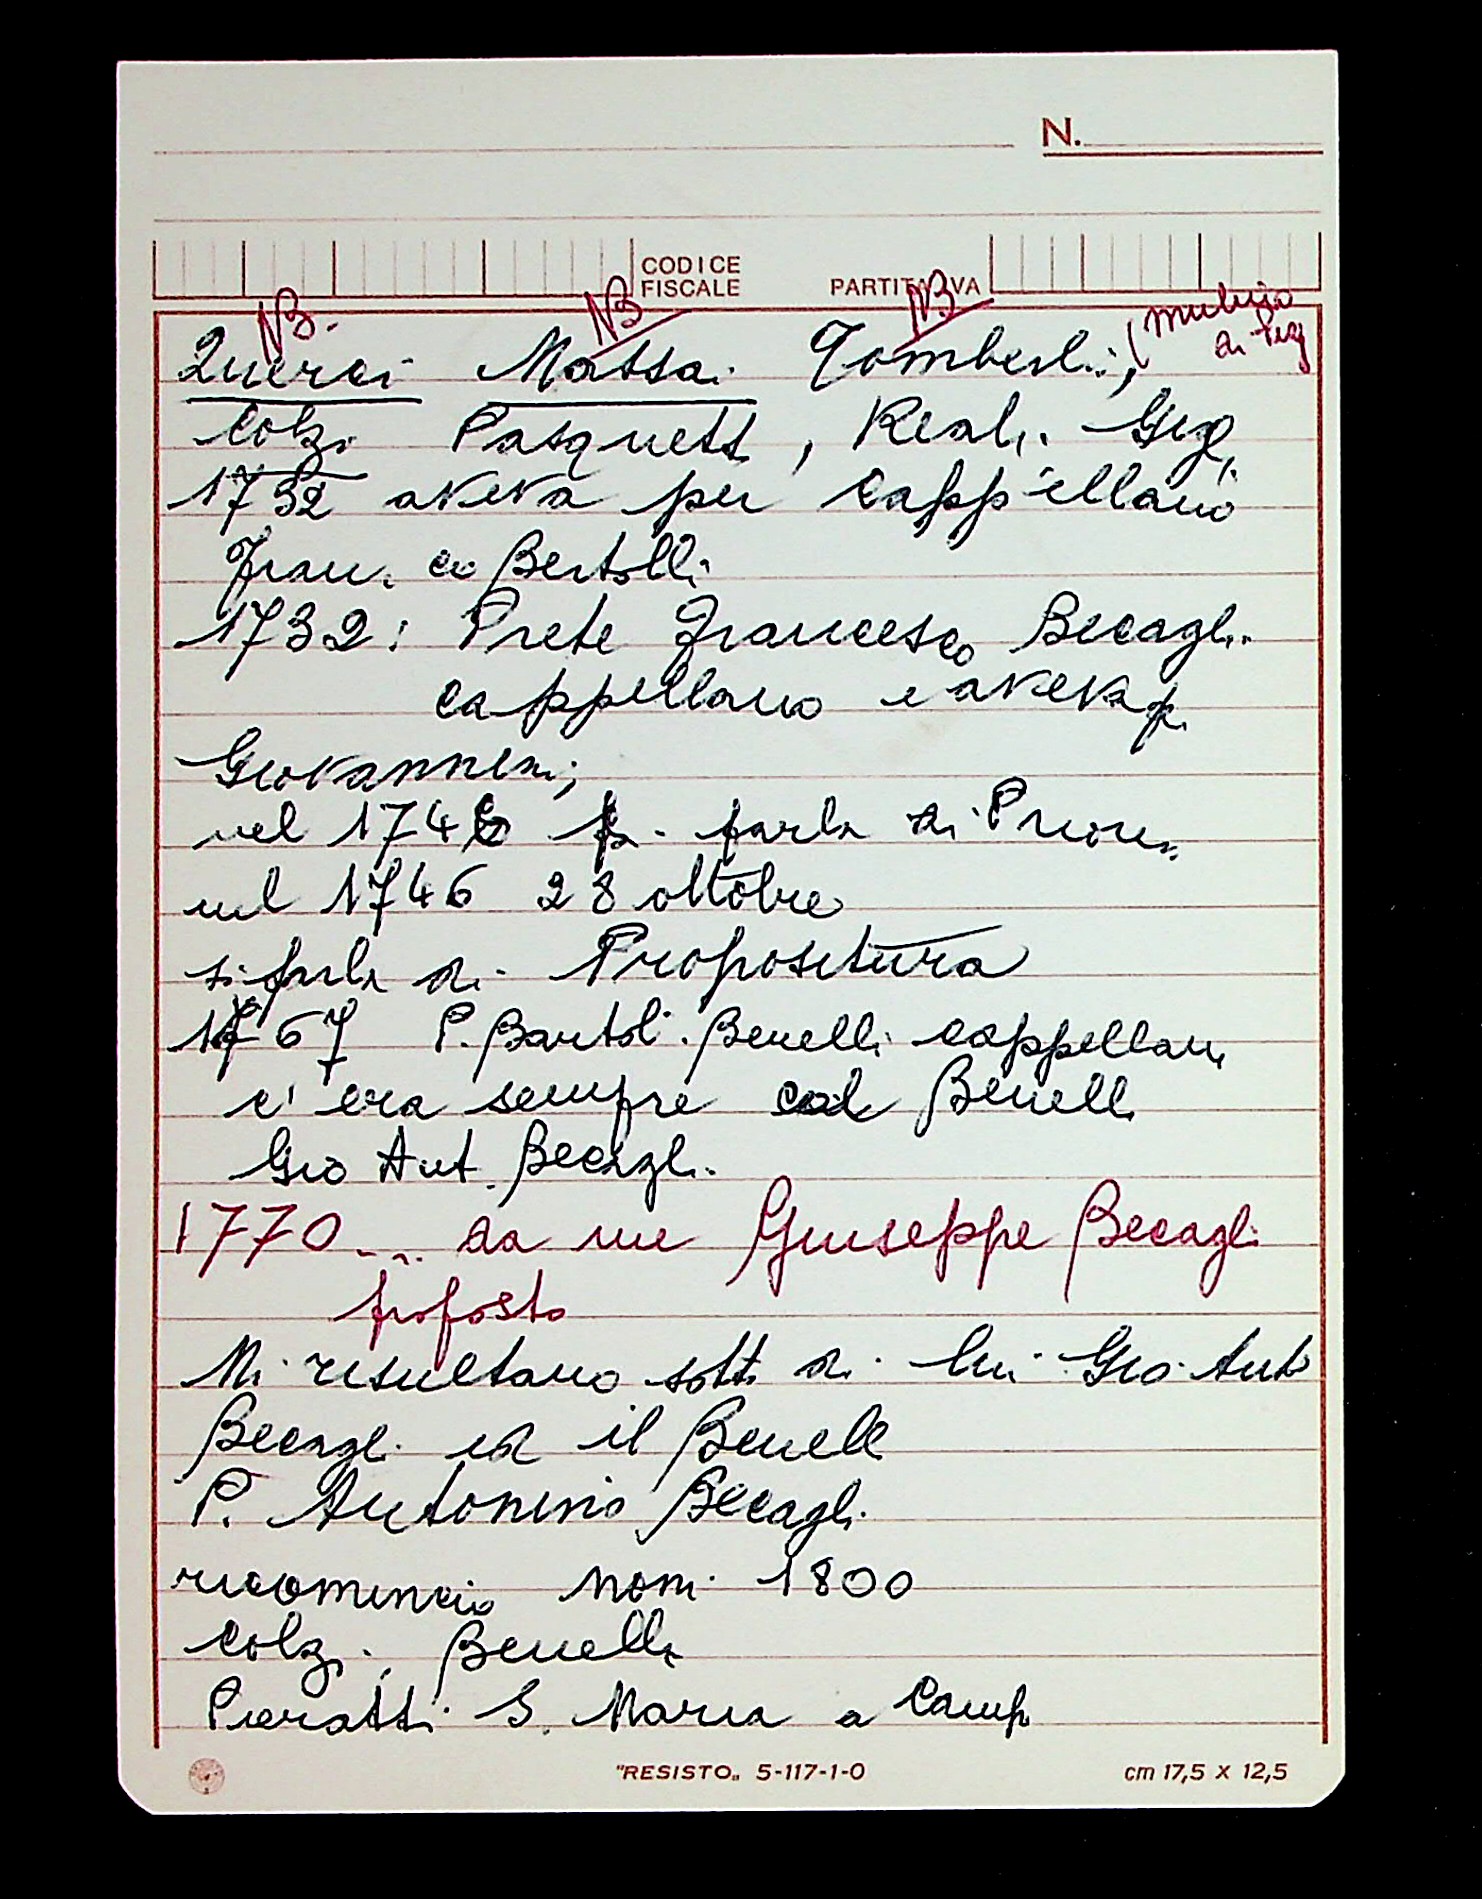 N.
CODICE
FISCALE
PARTITA IVA
NB. NB NB
Querci Massai Tomberli, (mulino
di
Colzi Pasquetti, Reali. Gigi
1732 aveva per cappellano
Fran. co Bertolli
1732: Prete Francesco Becagli
cappellano e aveva p.
Giovannini;
nel 174 parla di Priore
nel 1746 28 ottobre
si parla di Propositura
1767 P. Bartol. Benelli cappellano
c'era sempre col Benelli
Gio Ant. Becagli
1770 ... da me Giuseppe Becagli
proposto
Mi risultano sotto di lui Gio Anto
Becagli ed il Benelli
P. Antonino Becagli
ricomincio nomi 1800
Colzi. Benelli
Pieratti S. Maria a Camp
"RESISTO„ 5-117-1-0
cm 17,5 X 12,5